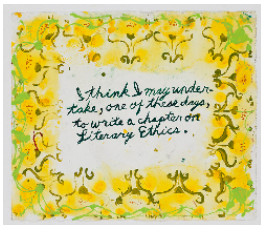 I think I may under-
take, one of these days,
to write a chapter on
Literary Ethics.